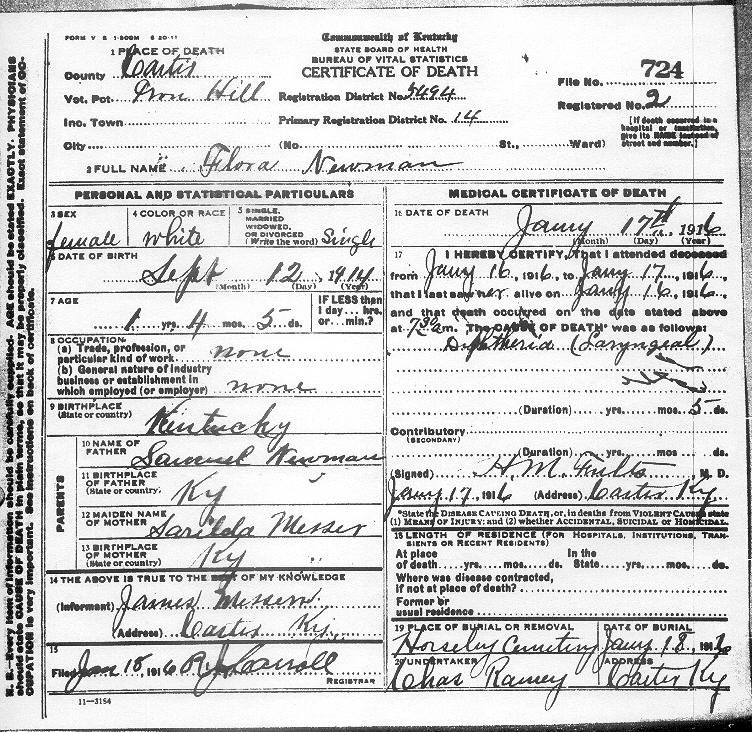 FORM V S 1-50BM 6 20-11
Commonwealth of Kentucky
STATE BOARD OF HEALTH
BUREAU OF VITAL STATISTICS
CERTIFICATE OF DEATH
1 PLACE OF DEATH
County Carter
Vot. Pct. Iron Hill
Inc. Town
City (No. St., Ward)
Registration District No. 5494
Primary Registration District No. 14
File No. 724
Registered No. 2
[If death occurred in a hospital or institution, give its NAME instead of street and number.]
2 FULL NAME Flora Newman
PERSONAL AND STATISTICAL PARTICULARS
3 SEX female
4 COLOR OR RACE white
5 SINGLE, MARRIED WIDOWED, OR DIVORCED (Write the word) Single
6 DATE OF BIRTH
Sept 12, 1914
(Month) (Day) (Year)
7 AGE
1 yrs. 4 mos. 5 ds.
IF LESS than 1 day... hrs. or... min.?
8 OCCUPATION
(a) Trade, profession, or particular kind of work none
(b) General nature of industry business or establishment in which employed (or employer) none
9 BIRTHPLACE (State or country) Kentucky
PARENTS
10 NAME OF FATHER Samuel Newman
11 BIRTHPLACE OF FATHER (State or country) Ky
12 MAIDEN NAME OF MOTHER Sarilda Messer
13 BIRTHPLACE OF MOTHER (State or country) Ky
14 THE ABOVE IS TRUE TO THE BEST OF MY KNOWLEDGE
(Informant) James Messer
(Address) Carter Ky.
15
Filed Jan 18, 1916 R J Carroll
REGISTRAR
11-3184
MEDICAL CERTIFICATE OF DEATH
16 DATE OF DEATH
Jany 17th, 1916
(Month) (Day) (Year)
17 I HEREBY CERTIFY, That I attended deceased
from Jany 16, 1916, to Jany 17, 1916,
that I last saw her alive on Jany 16, 1916,
and that death occurred on the date stated above
at 7 30 a m. The CAUSE OF DEATH* was as follows:
Diphtheria (Laryngeal)
(Duration) yrs. mos. 5 ds.
Contributory
(SECONDARY)
(Duration) yrs. mos. ds.
(Signed) H. M. Fults, M. D.
Jany 17, 1916 (Address) Carter Ky
*State the DISEASE CAUSING DEATH, or, in deaths from VIOLENT CAUSES, state
(1) MEANS OF INJURY; and (2) whether ACCIDENTAL, SUICIDAL or HOMICIDAL.
18 LENGTH OF RESIDENCE (FOR HOSPITALS, INSTITUTIONS, TRANSIENTS OR RECENT RESIDENTS)
At place of death yrs. mos. ds. In the State yrs. mos. ds.
Where was disease contracted, if not at place of death?
Former or usual residence
19 PLACE OF BURIAL OR REMOVAL Horseley Cemetery
DATE OF BURIAL Jany 18, 1916
20 UNDERTAKER Chas Ramey
ADDRESS Carter Ky
N. B.—Every item of information should be carefully supplied. AGE should be stated EXACTLY. PHYSICIANS
should state CAUSE OF DEATH in plain terms, so that it may be properly classified. Exact statement of OC-
CUPATION is very important. See instructions on back of certificate.